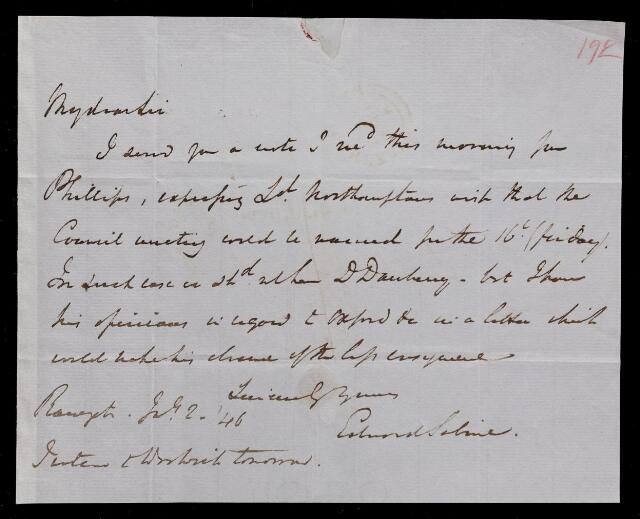 192
My dear Sir
I send you a note I recd this morning from
Phillips, expressing Ld. Northamptons wish that the
Council meeting could be named for the 16t. (friday).
In such case we shd. Dr Daubeny - but I have
his opinions in regard to Oxford &c in a letter which
would make his absence of the less consequence
Sincerely Yours
Ramsgte. Jy. 2 - '46
Edward Sabine.
I return to Woolwich tomorrow.